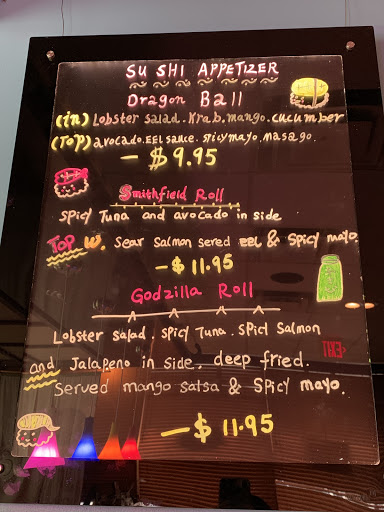 SUSHI APPETIZER
Dragon Ball
(in) Lobster salad. Krab. mango. cucumber
(TOP) avocado. EEL sauce. spicy mayo. masago.
- $9.95
Smithfield Roll
spicy Tuna and avocado in side
Top W. Sear Salmon sered EEL & spicy mayo.
- $11.95
Godzilla Roll
Lobster salad. spicy Tuna. spicy salmon
EXIT
and Jalapeno in side, deep fried.
Served mango salsa & spicy mayo.
- $11.95